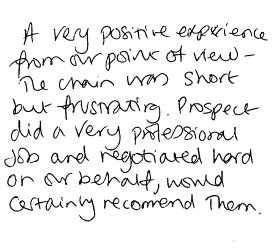 A very positive experience
from our point of view –
The chain was short
but frustrating. Prospect
did a very professional
job and negotiated hard
on our behalf, would
certainly recomend Them.